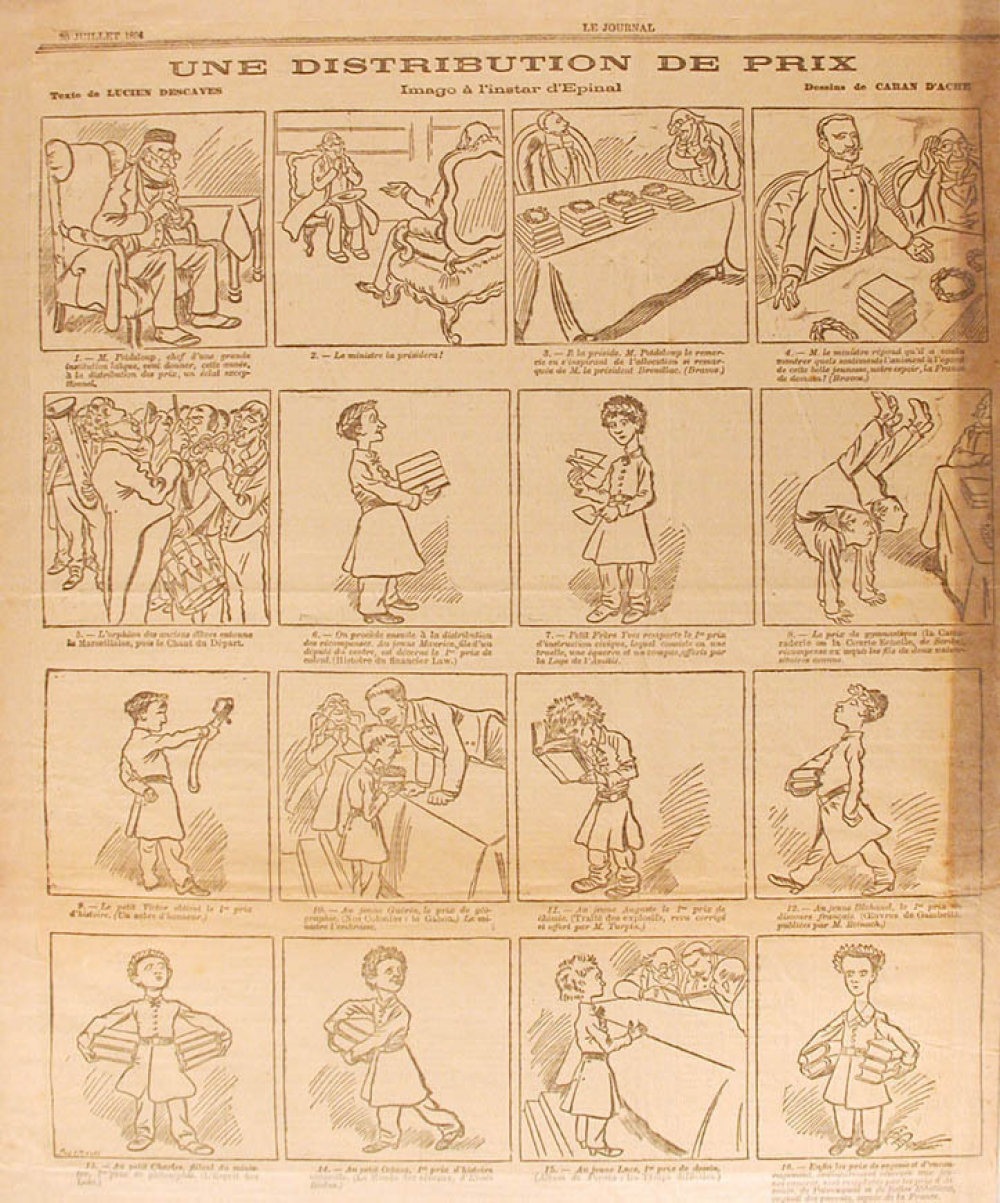 JUILLET 1894
LE JOURNAL
UNE DISTRIBUTION DE PRIX
Texte de LUCIEN DESCAVES
Image à l'instar d'Epinal
Dessins de CARAN D'ACHE
1. — M. Petdeloup, chef d'une grande
institution laïque, veut donner, cette année,
à la distribution des prix, un éclat excep-
tionnel.
2. — Le ministre la présidera!
3. — Il la préside. M. Petdeloup le remer-
cie en s'inspirant de l'allocution si remar-
quée de M. le président Bremllac. (Bravos.)
4. — M. le ministre répond qu'il a voulu
montrer quels sentiments l'animent à l'égard
de cette belle jeunesse, notre espoir, la France
de demain! (Bravos.)
5. — L'orphéon des anciens élèves entonne
la Marseillaise, puis le Chant du Départ.
6. — On procède ensuite à la distribution
des récompenses. Au jeune Maurice, fils d'un
député du centre, est décerné le 1er prix de
calcul. (Histoire du financier Law.)
7. — Petit Frère Yves remporte le 1er prix
d'instruction civique, lequel consiste en une
truelle, une équerre et un compas, offerts par
la Loge de l'Amitié.
8. — Le prix de gymnastique (la
ou la Courte Echelle, de
récompense ex æquo les fils de deux
connus.
9. — Le petit Victor obtient le 1er prix
d'histoire. (Un sabre d'honneur.)
10. — Au jeune Guérin, le prix de géo-
graphie. (Nos Colonies : le Gabon.) Le mi-
nistre l'embrasse.
11. — Au jeune Auguste le 1er prix de
chimie. (Traité des explosifs, revu corrigé
et offert par M. Turpin.)
12. — Au jeune le 1er prix
discours français. (Œuvres de Gambetta,
publiées par M. Reinach.)
13. — Au petit Charles, filleul du minis-
tre, 1er prix de philosophie. (L'Esprit des
14. — Au petit 1er prix d'histoire
naturelle.
15. — Au jeune Luce, 1er prix de dessin.
(Album de
16. — Enfin les prix de sagesse et d'encou-